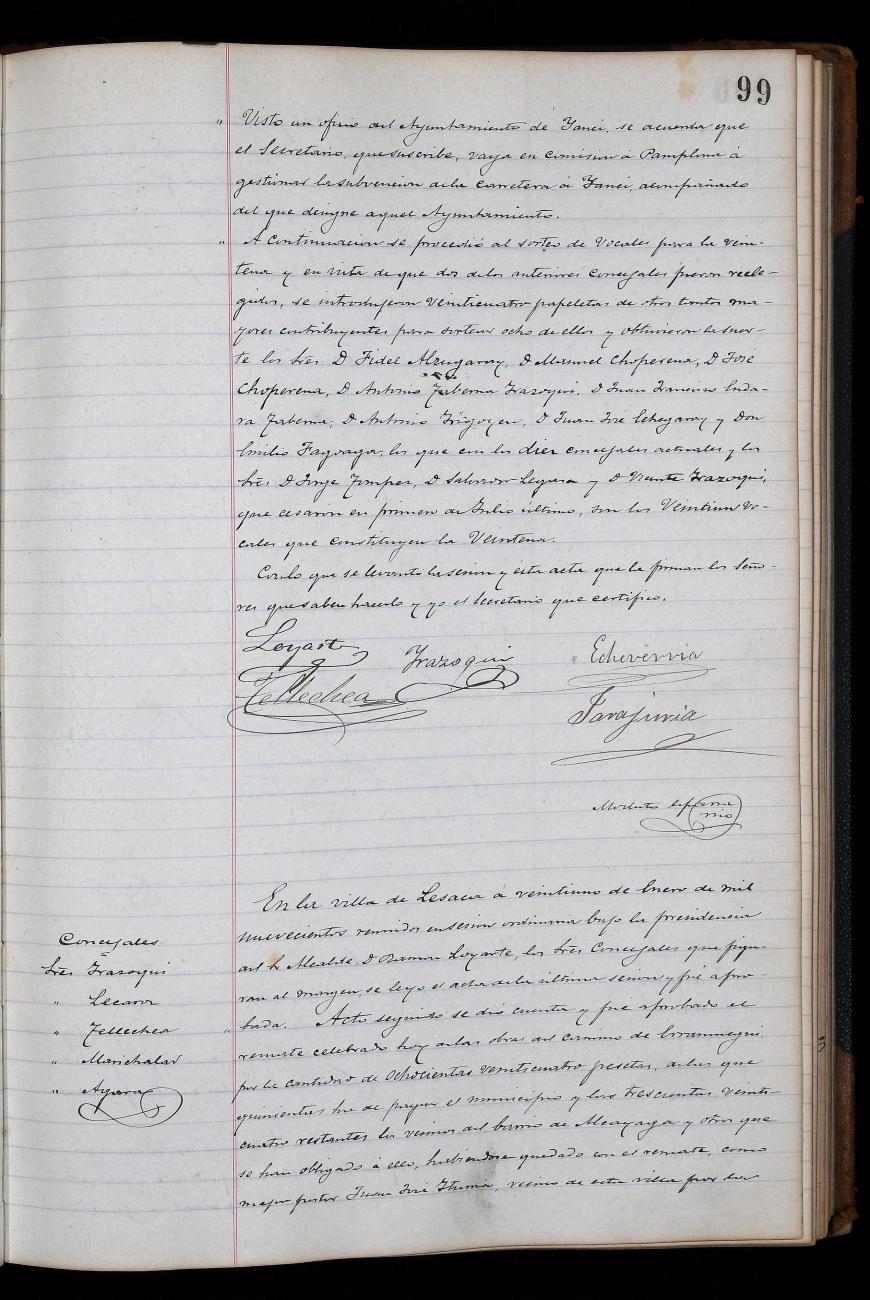 99
" Visto un oficio del Ayuntamiento de Yanci, se acuerda que
el Secretario, que suscribe, vaya en comision á Pamplona á
gestionar la subvencion de la carretera á Yanci, acompañado
del que designe aquel Ayuntamiento.
" A continuacion se procedió al sorteo de Vocales para la vein-
tena y en vista de que dos de los anteriores concejales fueron reele-
gidos, se introdujeron veinticuatro papeletas de otros tantos ma-
yores contribuyentes para sortear ocho de ellos y obtuvieron la suer-
te los Sres D Fidel Alzugaray, D Manuel Choperena, D José
Choperena, D Antonio Taberna Yrazoqui, D Juan Francisco Inda-
ra Taberna, D Antonio Yrigoyen, D Juan José Echegaray y Don
Emilio Fagoaga, los que con los diez concejales actuales y los
Sres D Jorge Tomper, D Salvador Leguia y D Vicente Yrazoqui,
que cesaron en primero de Julio último, son los Veintiun Vo-
cales que constituyen la Veintena.
Con lo que se levantó la sesion y ésta acta que la firman los Seño-
res que saben hacerlo y yo el Secretario que certifico.
Loyarte Yrazoqui " Echeverria
Tellechea
Tarajuria
Modesto
En la villa de Lesaca á veintiuno de Enero de mil
nuevecientos reunidos en sesion ordinaria bajo la presidencia
Concejales
del Sr Alcalde D Ramon Loyarte, los Sres Concejales que figu-
Sres Yrazoqui
ran al margen, se leyó el acta de la última sesion y fué apro-
" Lecaroz
bada. Acto seguido se dió cuenta y fué aprobado el
" Tellechea
" remate celebrado hoy de las obras del camino de
" Marichalar
por la cantidad de Ochocientas veinticuatro pesetas, de las que
" Agara
quinientas ha de pagar el municipio y las trescientas veinti-
cuatro restantes los vecinos del barrio de Alcayaga y otros que
se han obligado á ello, habiendose quedado con el remate, como
mejor postor Juan José Yturria, vecino de esta villa por la